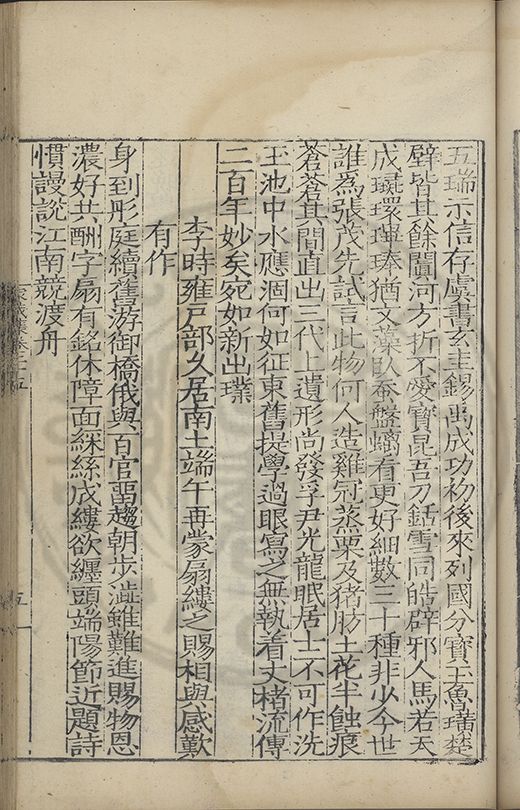 五瑞示信存虞書玄圭錫禹成功初後來列國分寳玉魯璜楚
壁皆其餘闐河方折不愛寳昆吾刀銛雪同皓辟邪人馬若天
成璏環琿琫猶文藻臥蠶盤螭看更好細數三十種非少今世
誰爲張茂先試言此物何人造雞冠蒸栗及猪肪土花半蝕痕
蒼蒼其間直出三代上遺形尚發孚尹光龍眠居士不可作洗
玉池中水應涸何如征東舊提學過眼寫之無執着文楮流傳
二百年妙矣宛如新出璞
李時雍戸部久居南土端午再蒙扇縷之賜相與感歎
有作
身到彤庭續舊游御橋俄與百官畱趨朝步澁雖難進賜物恩
濃好共酬字扇有銘休障面綵絲成縷欲纏頭端陽節近題詩
慣謾説江南競渡舟
家藏集卷二十五
五